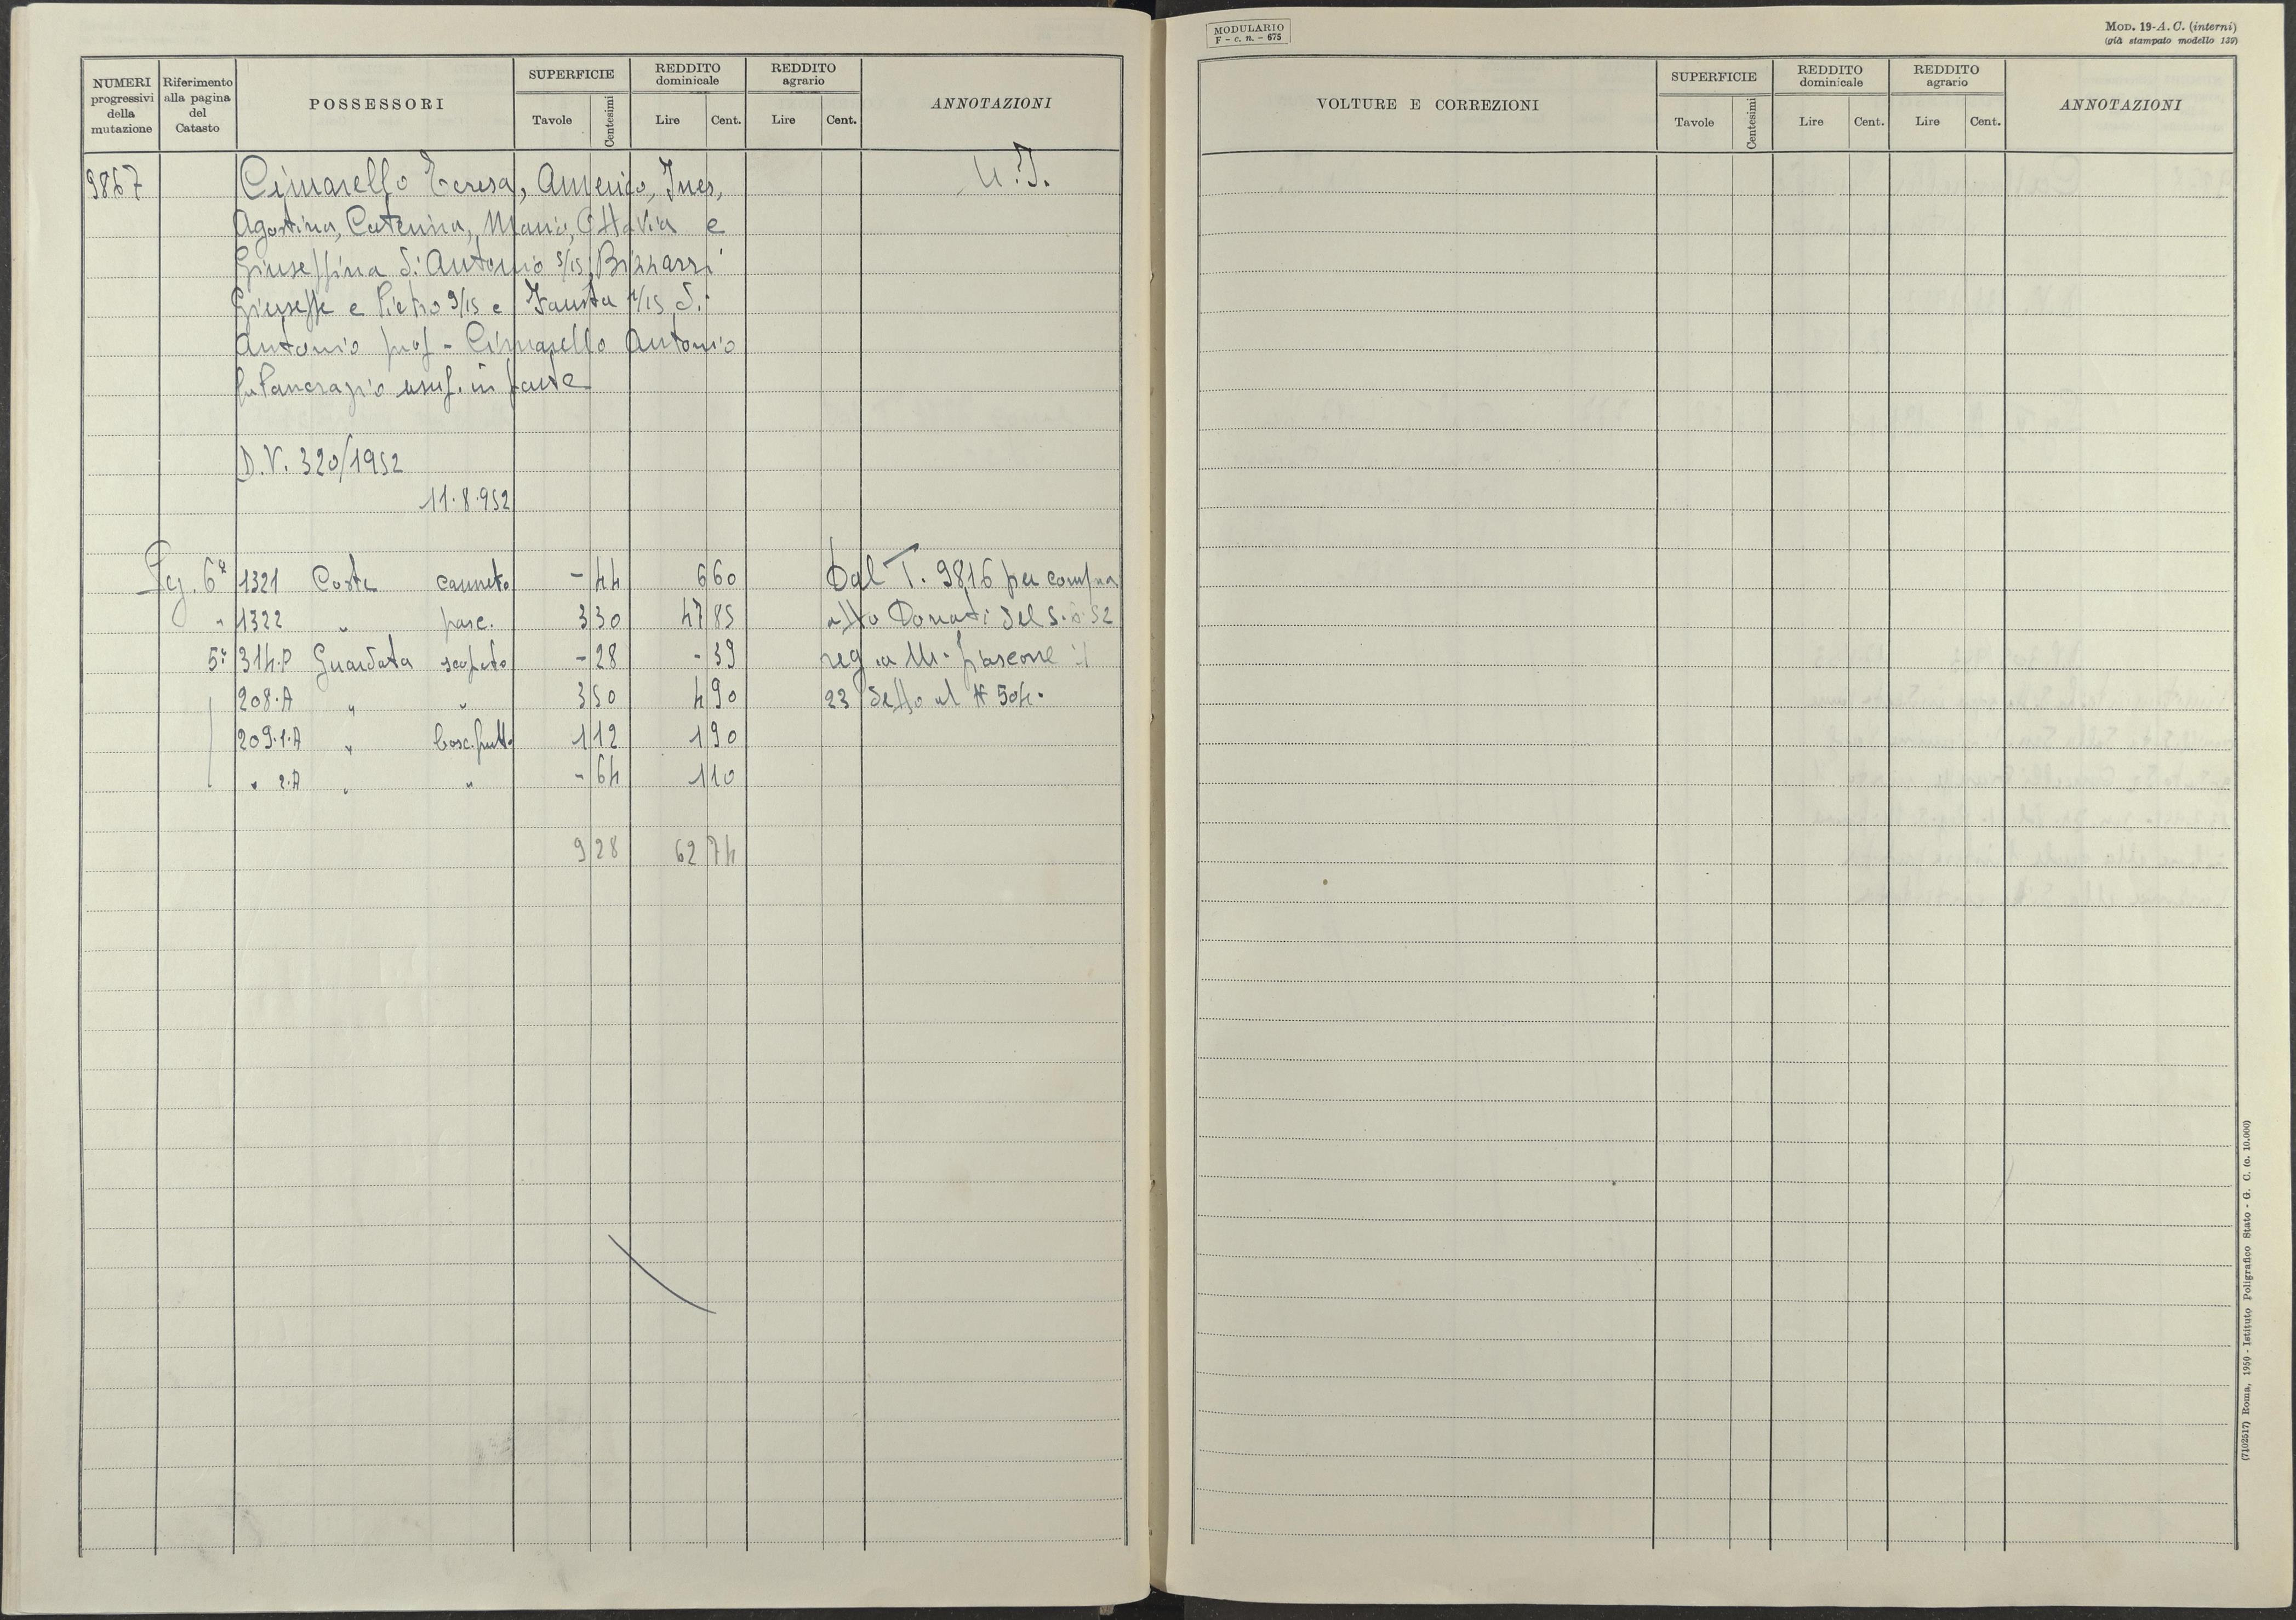 NUMERI progressivi della mutazione
Riferimento alla pagina del Catasto
POSSESSORI
SUPERFICIE
Tavole
Centesimi
REDDITO dominicale
Lire
Cent.
REDDITO agrario
Lire
Cent.
ANNOTAZIONI
9867 Cimarello Teresa, Americo, Ines,
Agostina, Caterina, Mario, Ottavia e
Giuseppina di Antonio 5/15, Bizzarri
Giuseppe e Pietro 9/15 e Fausta 1/15 di
Antonio prop - Cimarello Antonio
fu Pancrazio usuf. in parte
D.V. 320/1952
11.8.952
6ª 1321 Coste canneto - 44 6 60 Dal T. 9816 per compra
" 1322 " pasc. 3 30 47 85 atto Donati del 5.8.52
5ª 314.P Guardata - 28 - 39 reg. a M. fiascone il
208.A " " 3 50 4 90 23 detto al # 504.
209.1.A " bosc.frutto 1 12 1 90
" 2.A " " - 64 1 10
9 28 62 74
MODULARIO
F - c. n. - 675
MOD. 19-A. C. (interni)
(già stampato modello 139)
VOLTURE E CORREZIONI
SUPERFICIE
Tavole
Centesimi
REDDITO dominicale
Lire
Cent.
REDDITO agrario
Lire
Cent.
ANNOTAZIONI
(7102517) Roma, 1950 - Istituto Poligrafico Stato - G. C. (c. 10.000)